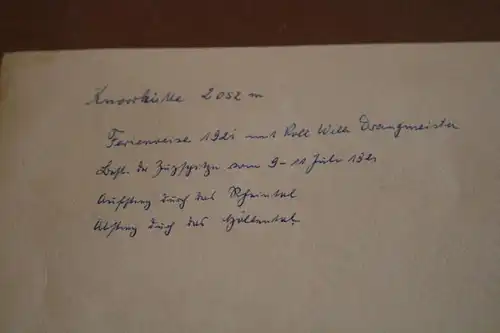 Knorrhütte 2052 m
Ferienreise 1921 mit Koll. Willi Drangmeister
Best. der Zugspitze vom 9-11 Juli 1921
Aufstieg durch das Rheintal
Abstieg durch das Höllental